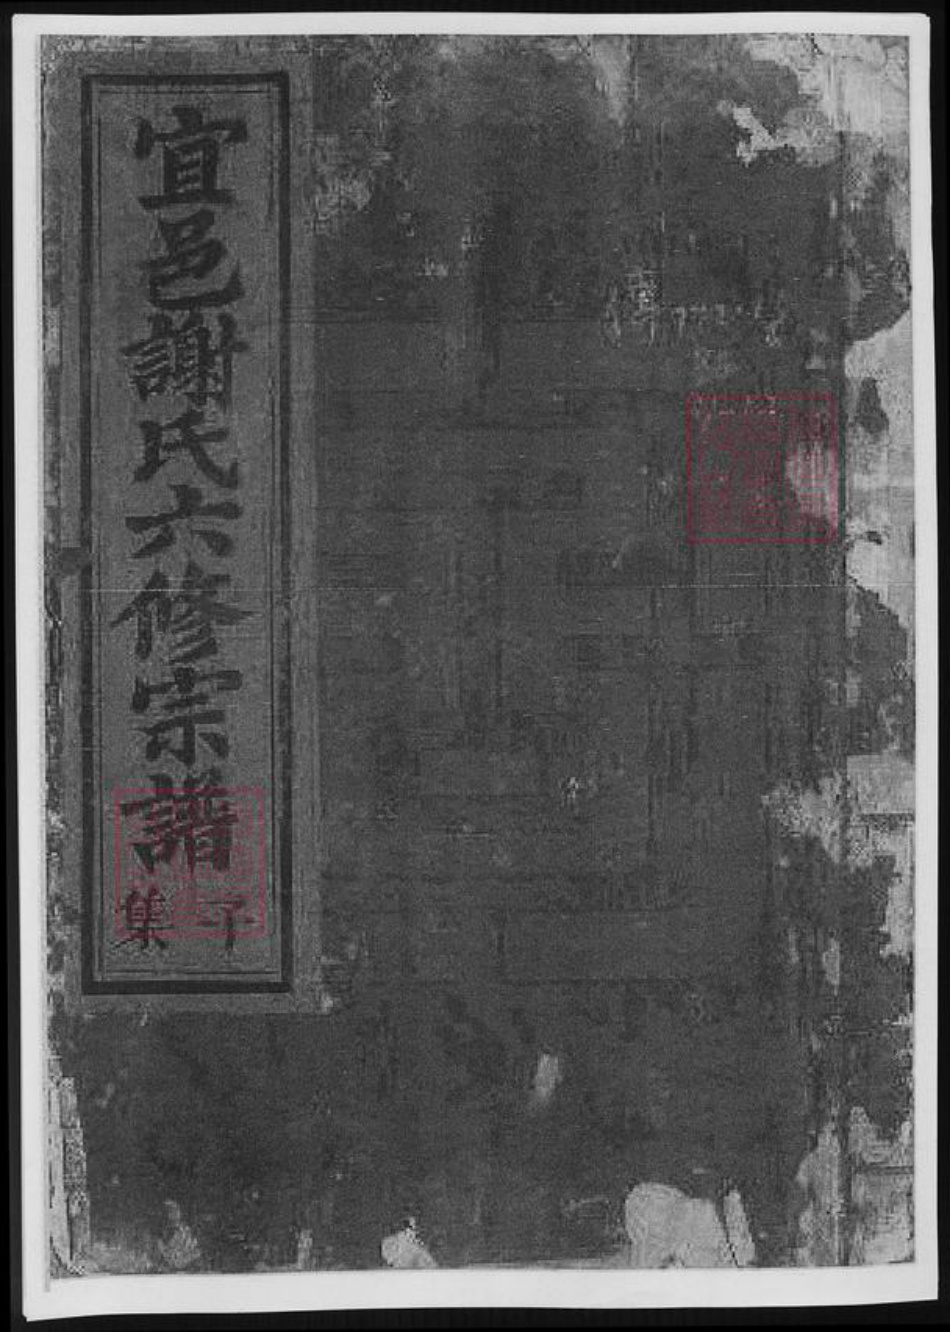 宜邑謝氏六修宗譜
子集